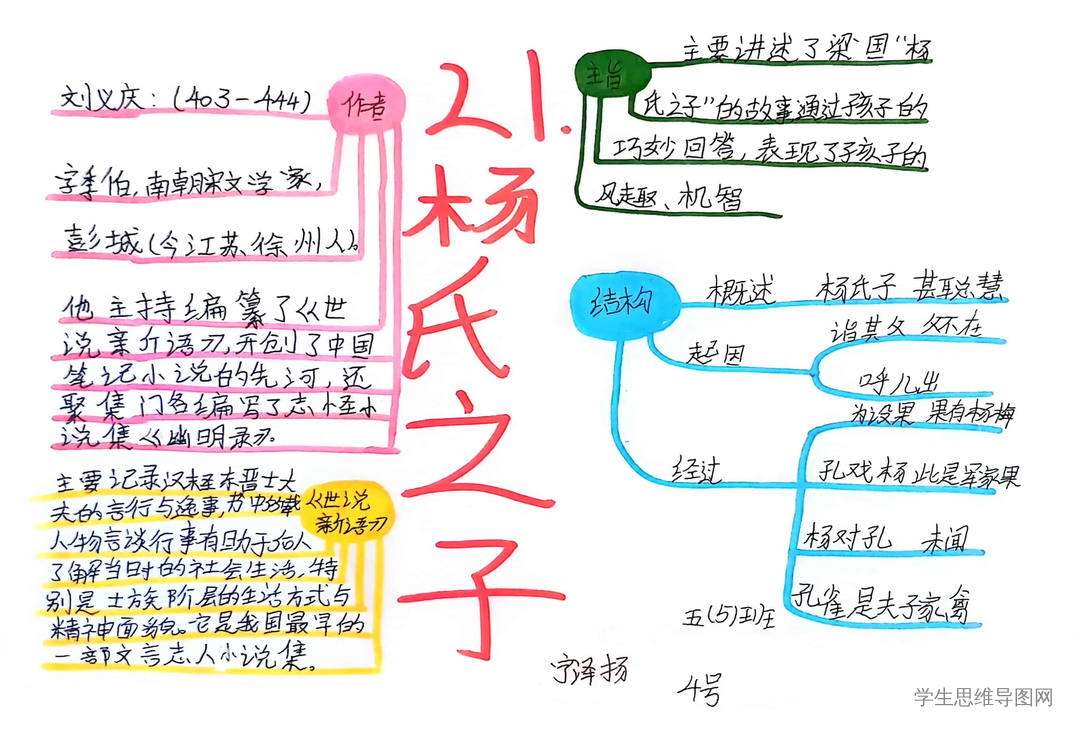 21.
杨氏之子
作者
刘义庆：(403-444)
字季伯，南朝宋文学家，
彭城(今江苏徐州人)。
他主持编纂了《世
说亲斤语》，开创了中国
笔记小说的先河，还
聚集门各编写了志怪小
说集《幽明录》。
《世说
新语》
主要记录汉末至东晋士大
夫的言行与逸事，书中所载
人物言谈行事有助于后人
了解当时的社会生活，特
别是士族阶层的生活方式与
精神面貌。它是我国最早的
一部文言志人小说集。
主旨
主要讲述了梁国“杨
氏之子”的故事通过孩子的
巧妙回答，表现了子孩子的
风趣、机智
结构
概述 杨氏子 甚聪慧
起因
诣其父 父不在
呼儿出
经过
为设果 果有杨梅
孔戏杨 此是军家果
杨对孔 未闻
孔雀是夫子家禽
五(5)班
泽扬
4号
学生思维导图网